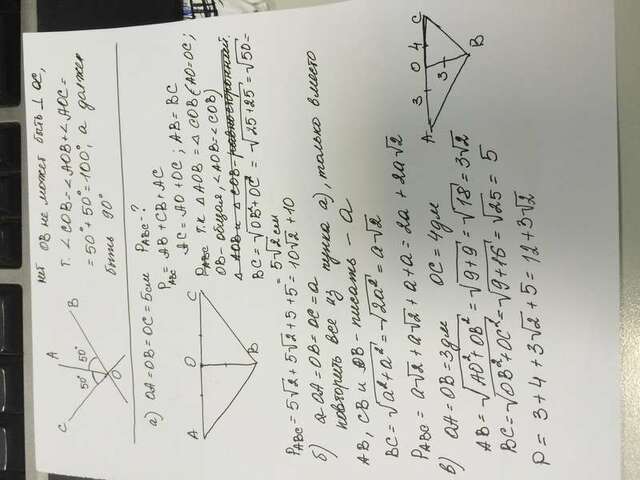 нет OB не может быть ⊥ OC,
т. ∠COB = ∠AOB + ∠AOC =
= 50° + 50° = 100°, а должен
быть 90°
C
A
B
50°
50°
O
а) OA = OB = OC = 5см P_ABC - ?
P_ABC = AB + CB + AC
AC = AO + OC; AB = BC
т.к △AOB = △COB (AO = OC;
OB - общая, ∠AOB = ∠COB)
BC = √OB² + OC² = √25+25 = √50 =
= 5√2 см
A
O
C
B
P_ABC = 5√2 + 5√2 + 5 + 5 = 10√2 + 10
б) OA = OB = OC = a
повторить все из пункта а), только вместо
AB, CB и OB - писать - a
BC = √a² + a² = √2a² = a√2
P_ABC = a√2 + a√2 + a + a = 2a + 2a√2
в) OA = OB = 3дм OC = 4дм
AB = √AO² + OB² = √9+9 = √18 = 3√2
BC = √OB² + OC² = √9+16 = √25 = 5
P = 3 + 4 + 3√2 + 5 = 12 + 3√2
A
3
O
4
C
3
B